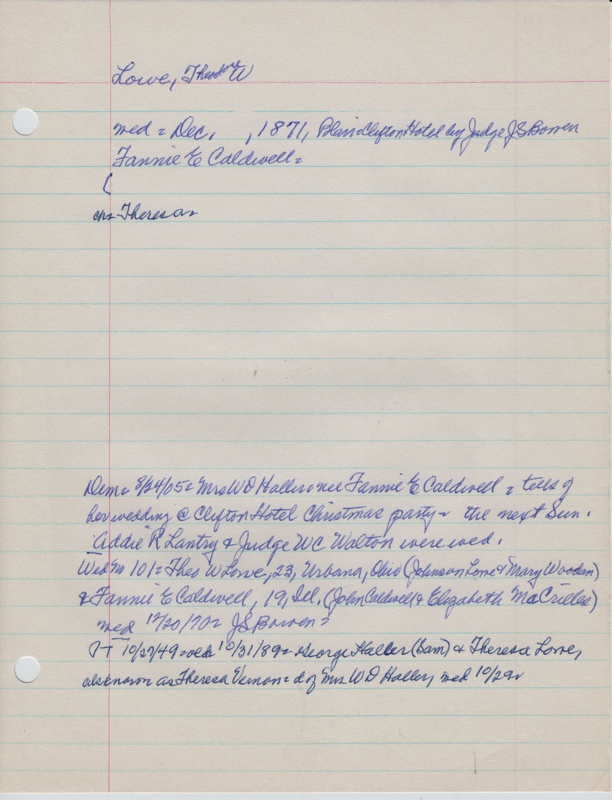 Lowe, Theodore W
wed = Dec. , 1871, Blair = Clifton Hotel by Judge JS Bowen
Fannie E Caldwell =
(
ch = Theresa =
Dem = 8/24/05 = Mrs WD Haller = nee Fannie E Caldwell = tells of
her wedding @ Clifton Hotel Christmas party = the next Sun.
Addie R Lantry & Judge WC Walton were wed.
Wed 101 = Theo W Lowe, 23, Urbana, Ohio (Johnson Lowe & Mary Wooden)
& Fannie E Caldwell, 19, Ill, (John Caldwell & Elizabeth)
wed 12/20/70 = JS Bowen =
PT 10/27/49 = old 10/31/89 = George Haller (bam) & Theresa Lowe,
also known as Theresa Vernon = d of Mrs WD Haller, wed 10/29 =